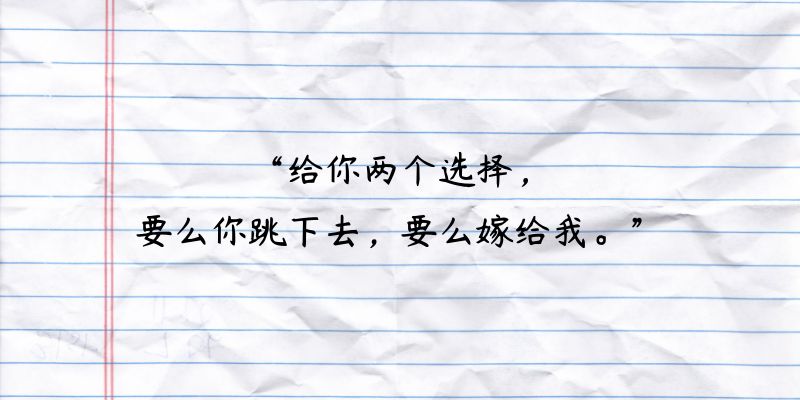 “给你两个选择，
要么你跳下去，要么嫁给我。”